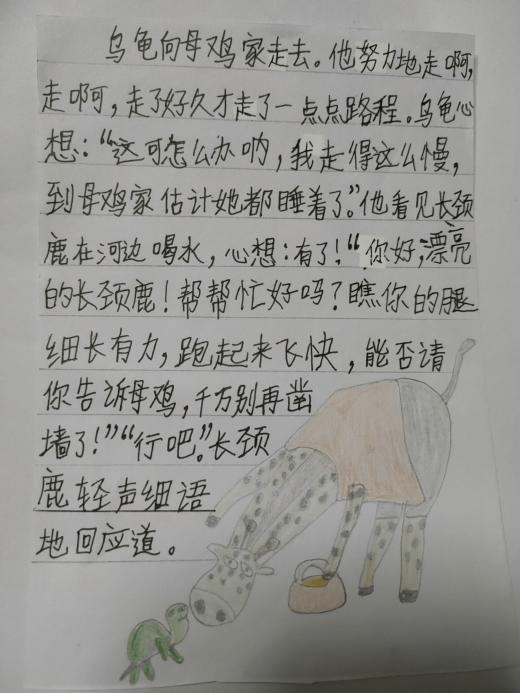 乌龟向母鸡家走去。他努力地走啊,
走啊，走了好久才走了一点点路程。乌龟心
想：“这可怎么办呐，我走得这么慢，
到母鸡家估计她都睡着了。”他看见长颈
鹿在河边喝水，心想：有了！“你好，漂亮
的长颈鹿！帮帮忙好吗？瞧你的腿
细长有力，跑起来飞快，能否请
你告诉母鸡，千万别再凿
墙了！”“行吧。”长颈
鹿轻声细语
地回应道。